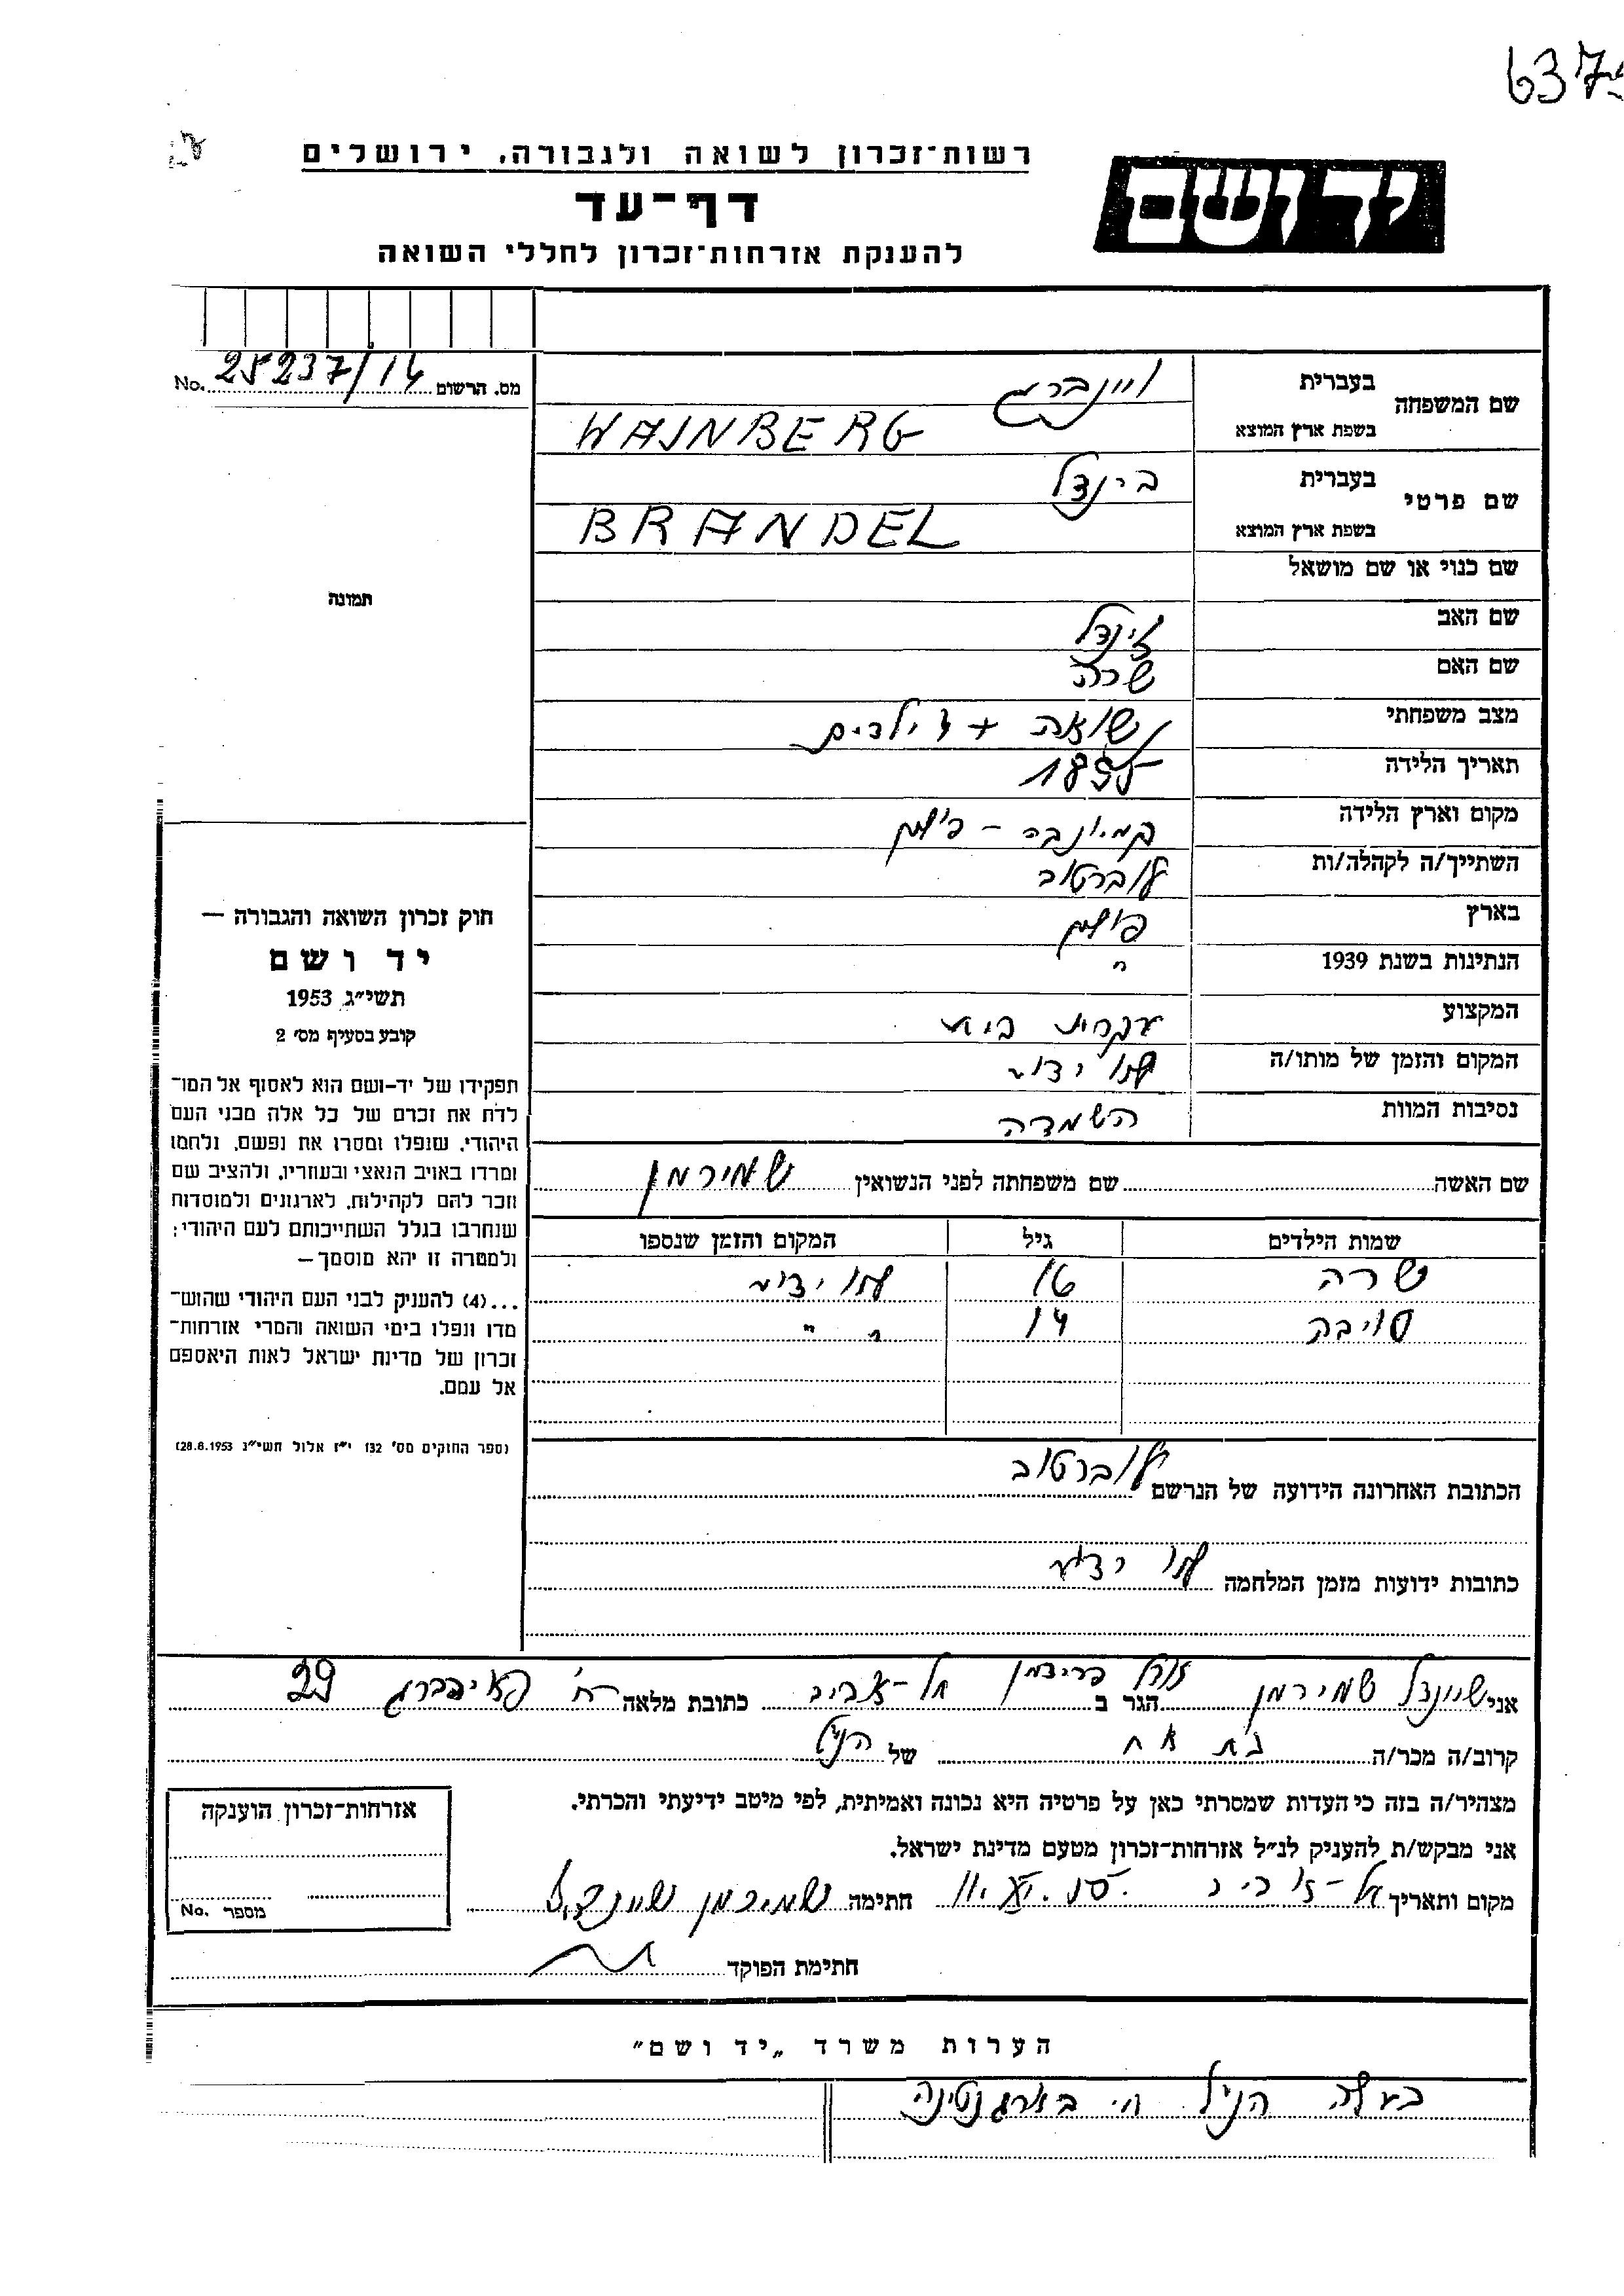 637
רשות־זכרון לשואה ולגבורה, ירושלים
יד ושם
דף־עד
להענקת אזרחות־זכרון לחללי השואה
מס. הרשום 25237/14 No.
שם המשפחה בעברית ויינברג
בשפת ארץ המוצא WAJNBERG
שם פרטי בעברית
בשפת ארץ המוצא BRANDEL
שם כנוי או שם מושאל
תמונה
שם האב זינדל
שם האם שרה
מצב משפחתי נשואה + ילדים
תאריך הלידה 1895
מקום וארץ הלידה קמיונקה - פולין
השתייך/ה לקהלה/ות לוברטוב
בארץ פולין
הנתינות בשנת 1939 "
המקצוע עקרת בית
המקום והזמן של מותו/ה לא ידוע
נסיבות המוות השמדה
חוק זכרון השואה והגבורה —
יד ושם
תשי״ג 1953
קובע בסעיף מס׳ 2
תפקידו של יד-ושם הוא לאסוף אל המו־
לדת את זכרם של כל אלה מבני העם
היהודי, שנפלו ומסרו את נפשם, נלחמו
ומרדו באויב הנאצי ובעוזריו, ולהציב שם
וזכר להם לקהילות, לארגונים ולמוסדות
שנחרבו בגלל השתייכותם לעם היהודי;
ולמטרה זו יהא מוסמך —
...(4) להעניק לבני העם היהודי שהוש־
מדו ונפלו בימי השואה והמרי אזרחות־
זכרון של מדינת ישראל לאות היאספם
אל עמם.
(ספר החוקים מס׳ 132 י״ז אלול תשי״ג 28.8.1953)
שם האשה שם משפחתה לפני הנשואין שמירמן
שמות הילדים גיל המקום והזמן שנספו
שרה 16 לא ידוע
טויבה 14 " "
הכתובת האחרונה הידועה של הנרשם לוברטוב
כתובות ידועות מזמן המלחמה לא ידוע
אני שיינדל שמירמן הגר ב תל-אביב כתובת מלאה רח׳ פיינברג 29
קרוב/ה מכר/ה בת אח של הנ״ל
מצהיר/ה בזה כי העדות שמסרתי כאן על פרטיה היא נכונה ואמיתית, לפי מיטב ידיעתי והכרתי.
אני מבקש/ת להעניק לנ״ל אזרחות־זכרון מטעם מדינת ישראל.
מקום ותאריך חתימה שמירמן שיינדל
חתימת הפוקד
אזרחות־זכרון הוענקה
מספר No.
הערות משרד „יד ושם״
בעלה הנ״ל חי בארגנטינה